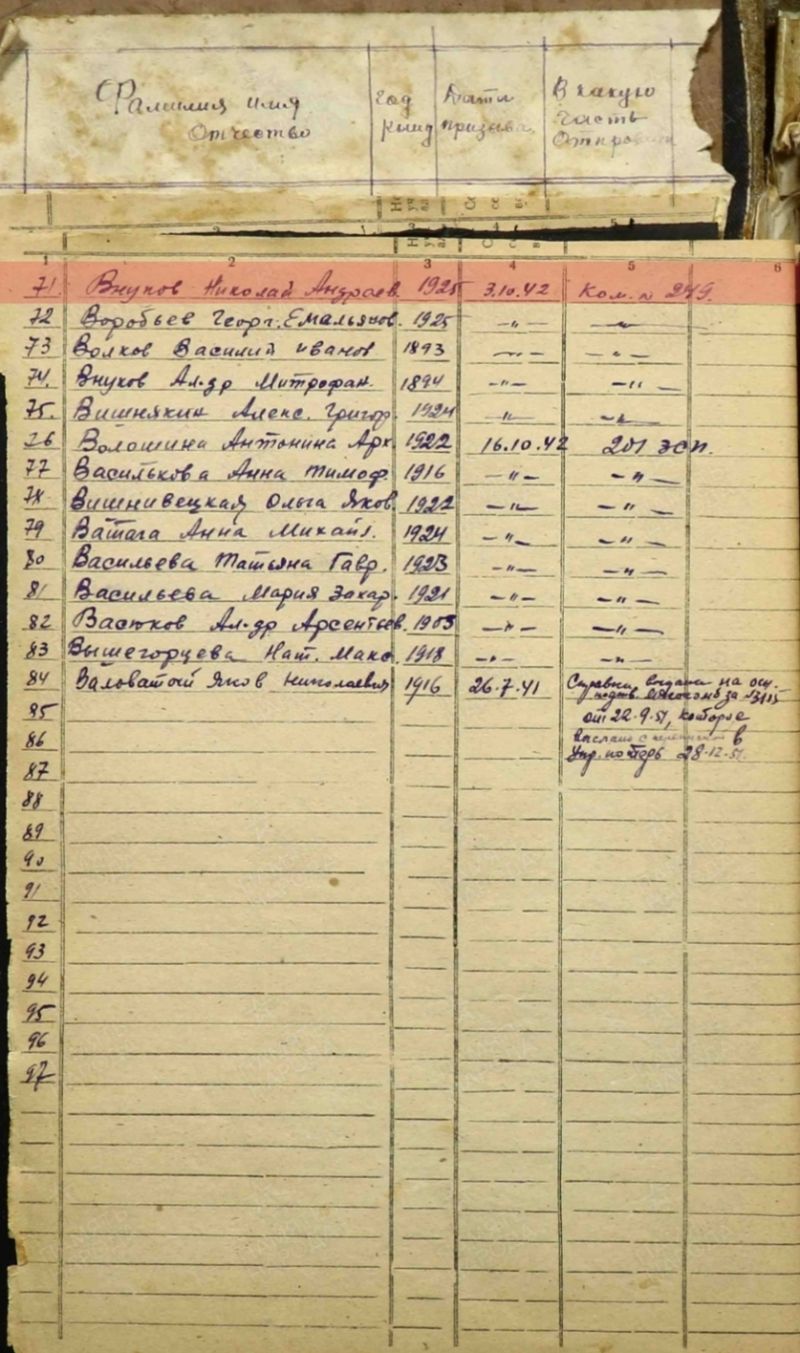 Фамилия имя Отчество
Год рожд
Дата призыва
В какую часть Отправ
1 2 3 4 5 6
71 Внуков Николай Андреев. 1925 3.10.42 Ком. № 249.
72 Воробьев Георг. Емельянов. 1925 —"— —"—
73 Волков Василий Иванов 1893 —"— —"—
74. Внуков Ал-др Митрофан. 1894 —"— —"—
75. Вишнякин Алекс. Григор. 1924 —"— —"—
76 Волошина Антонина Арк. 1922 16.10.42 201 эсп.
77 Василькова Анна Тимоф. 1916 —"— —"—
78 Вишнивецкая Ольга Яков. 1922 —"— —"—
79 Ватага Анна Михайл. 1924 —"— —"—
80 Васильева Татьяна Гавр. 1923 —"— —"—
81 Васильева Мария Захар. 1921 —"— —"—
82 Васюков Ал-др Арсентьев. 1903 —"— —"—
83 Вышегорцева Нат. Макс. 1918 —"— —"—
84 Валоватой Яков Николаевич 1916 26.7.41 Справка выдана на осн.
за №3115
85 от 22.9.51, которое
86 в
87 Упр. по 28.12.51.
88
89
90
91
92
93
94
95
96
97